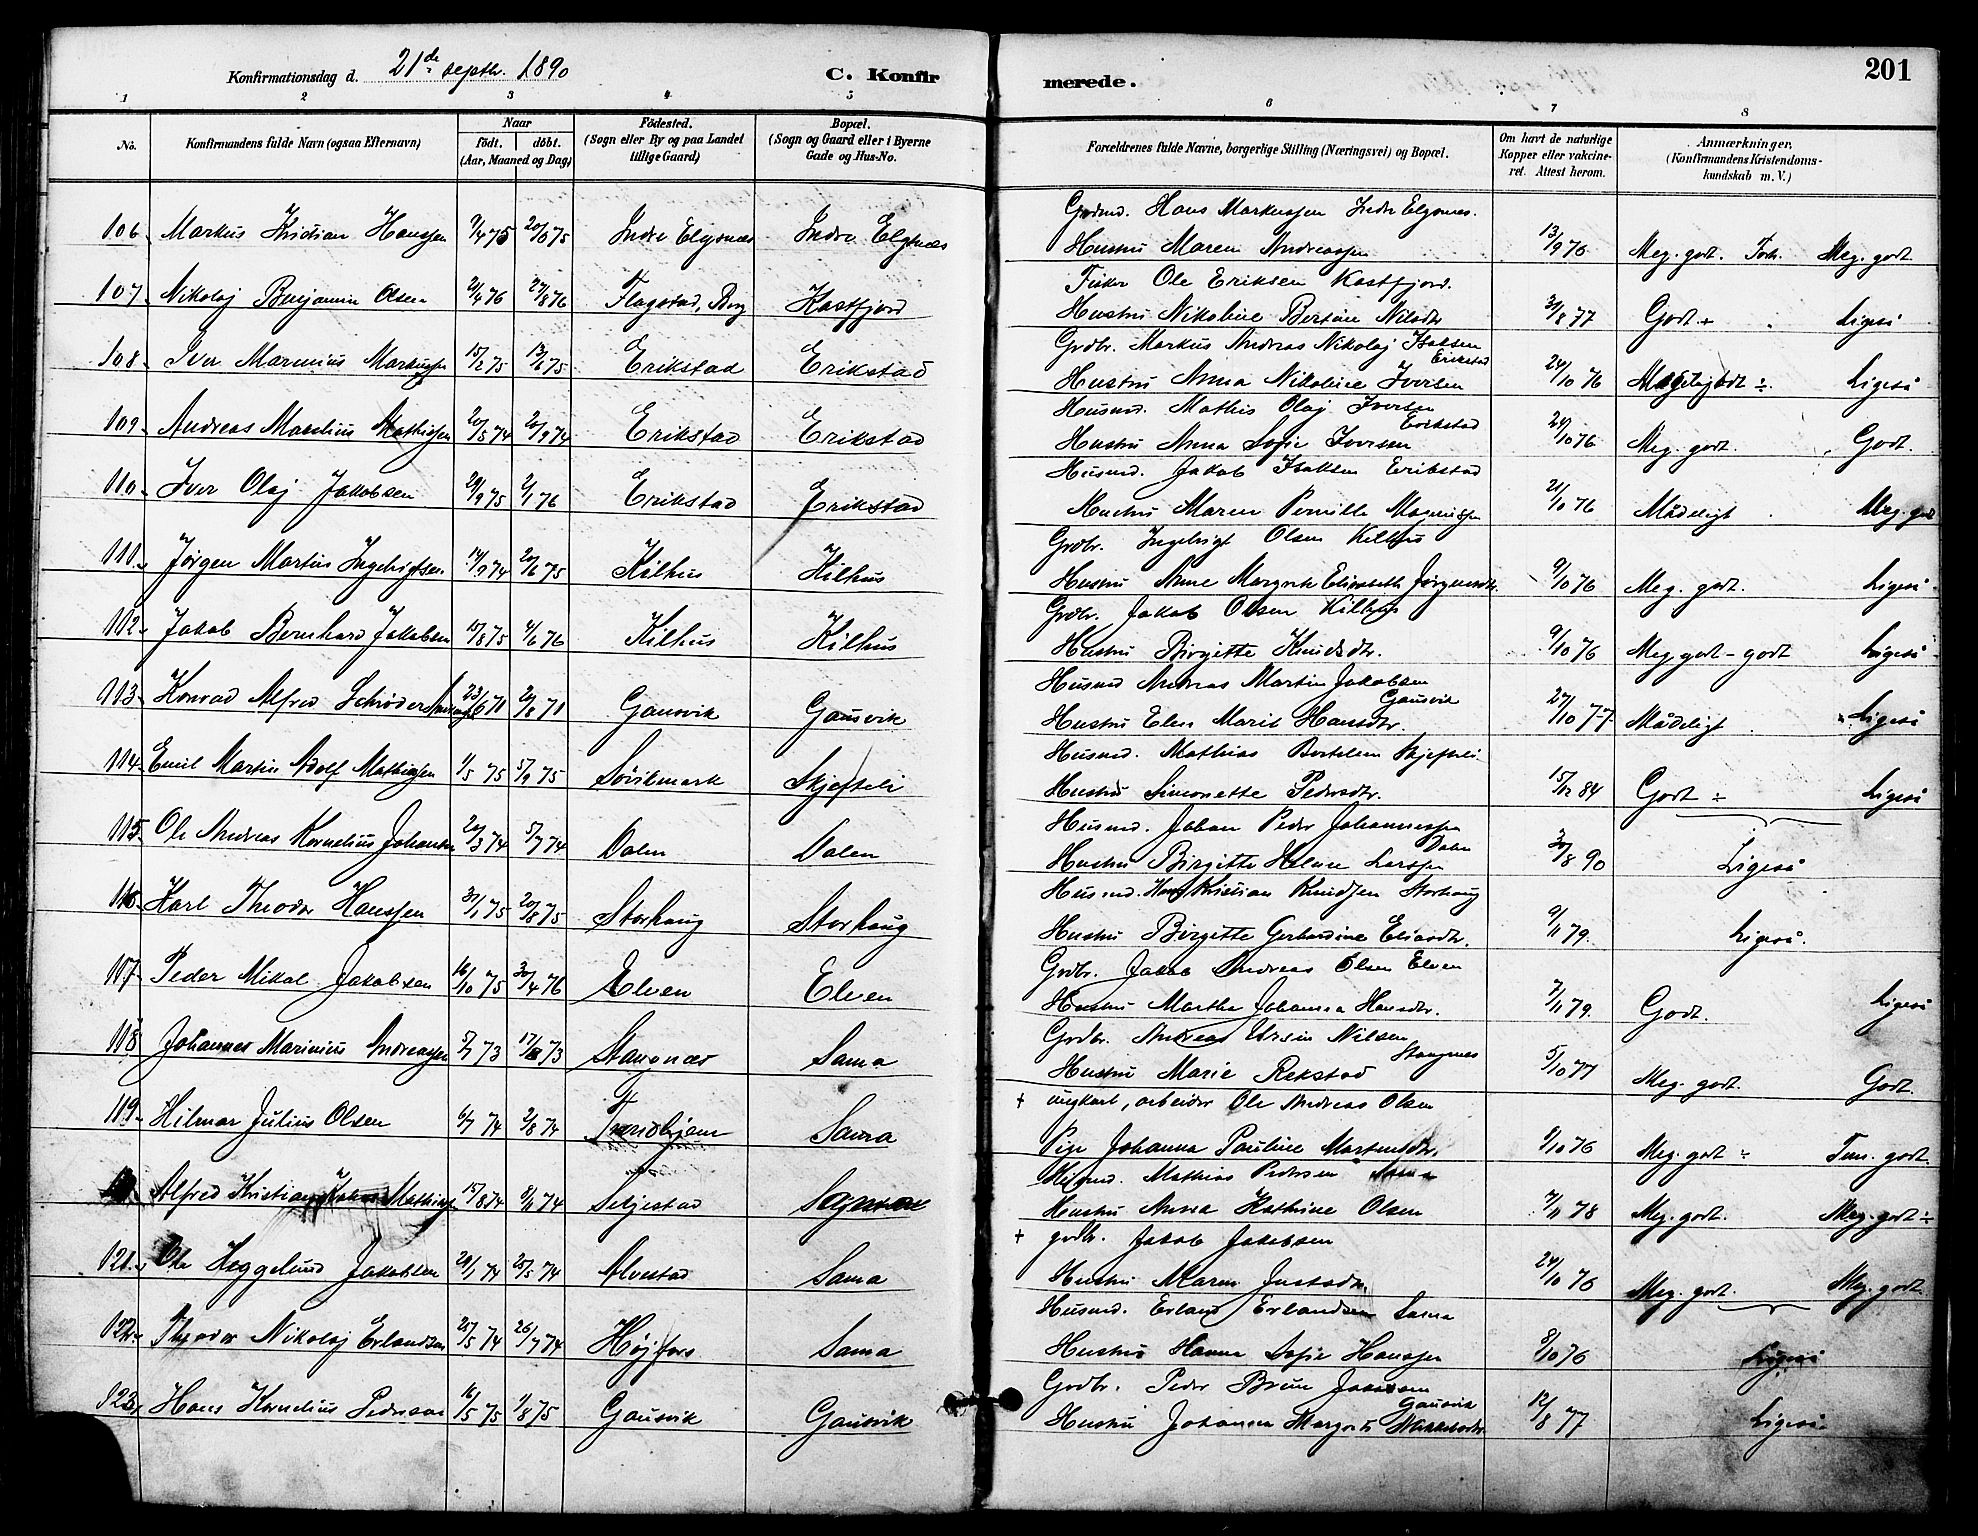 Konfirmationsdag d. 21de septbr. 1890
C. Konfirmerede.
201
1 2 3 4 5 6 7 8
No.
Konfirmandens fulde Navn (ogsaa Efternavn)
Naar
födt. döbt.
(Aar, Maaned og Dag)
Födested.
(Sogn eller By og paa Landet
tillige Gaard)
Bopæl.
(Sogn og Gaard eller i Byerne
Gade og Hus-No.
Forældrenes fulde Navne, borgerlige Stilling (Næringsvei) og Bopæl.
Om havt de naturlige
Kopper eller vakcine-
ret. Attest herom.
Anmærkninger.
(Konfirmandens Kristendoms-
kundskab m. V.)
Hans Markussen Indre Elgsnes.
106. Markus Kristian Hanssen 9/4 75 Indre Elgsnæs Indre Elgsnæs Hustru Maren Andreassen 13/9 76 Meg. godt. Meg. godt
Fisker Ole Eriksen Kastfjord.
107. Nikolaj Benjamin Olsen 21/4 76 27/8 76 Flagstad, Berg Kastfjord Hustru Nikoline Bertine Nilsdtr 31/8 77 Godt Ligeså
Grdbr. Markus Andreas Nikolaj Isaksen
Erikstad
108. Iver Marinius Markussen 15/2 75 13/6 75 Erikstad Erikstad Hustru Anna Nikoline Iversen 24/10 76 Ligeså
Husmd. Mathis Olaj Iversen
Erikstad
109. Andreas Marelius Mathissen 20/5 74 20/9 74 Erikstad Erikstad Hustru Anna Sofie Iversen 24/10 76 Meg. godt. Godt.
Husmd. Jakob Isaksen Erikstad
110. Iver Olaj Jakobsen 29/9 75 2/1 76 Erikstad Erikstad Hustru Maren Pernille Magnussen 21/10 76 Mådeligt Meg. godt
Grdbr. Ingebrigt Olsen Kilhus
111. Jørgen Martin Ingebrigtsen 14/9 74 20/6 75 Kilhus Kilhus Hustru Anne Margrete Elisabeth Jørgensdtr. 9/10 76 Meg. godt. Ligeså
Grdbr. Jakob Olsen Kilhus
112. Jakob Bernhard Jakobsen 15/8 75 4/6 76 Kilhus Kilhus Hustru Birgitte Knudsdtr. 9/10 76 Meg godt - godt Ligeså
Husmd Andreas Martin Jakobsen
Gausvik
113. Konrad Alfred Schrøder Gausvik Gausvik Hustru Elen Marit Hansdtr. 27/10 77 Mådeligt Ligeså
Husmd. Mathias Bertelsen Skjefteli
114. Emil Martin Adolf Mathissen 1/5 75 5/9 75 Sørvikmark Skjefteli Hustru Simonette Pedersdtr. 15/12 84 Godt ÷ Ligeså
Husmd. Johan Peder Johannessen
Dalen
115. Ole Andreas Kornelius Johansen 20/3 74 5/7 74 Dalen Dalen Hustru Birgitte Helene Larssen 3/8 90 Ligeså
Husmd. Hans Kristian Knudsen Storhaug
116. Karl Theodor Hanssen 31/1 75 20/8 75 Storhaug Storhaug Hustru Birgitte Gerhardine Eliasdtr. 9/11 79. Ligeså.
Grdbr. Jakob Andreas Olsen Elven
117. Peder Mikal Jakobsen 16/10 75 30/4 76 Elven Elven Hustru Martha Johanna Hansdtr. 7/11 79. Godt. Ligeså
Grdbr. Andreas Ursin Nilsen
Stangnes
118. Johannes Marinius Andreassen 5/7 73 Stangnæs Sama Hustru Marie Rekstad 5/10 77 Meg. godt. Godt.
† ungkarl, arbeider Ole Andreas Olsen
119. Hilmar Julius Olsen 6/7 74 2/8 74 Trondhjem Sama Pige Johanna Pauline Martinsdtr. 9/10 76 Meg. godt ÷ Tem. godt.
Husmd. Mathias Pedersen Sama
Alfred Kristian Mathissen 15/8 74 8/11 74 Seljestad Hustru Anna Kathrine Olsen 7/11 78 Meg. godt. Meg. godt ÷
† grdbr. Jakob Jakobsen
121. Ole Heggelund Jakobsen 29/1 74 25/5 74 Alvestad Sama Hustru Maren Justsdtr. 24/10 76 Meg. godt. Meg. godt.
Husmd. Erland Erlandsen Sama
122. Theodor Nikolaj Erlandsen 25/5 74 26/7 74 Højfors Sama Hustru Hanna Sofie Hanssen 8/10 76 Ligeså
Grdbr. Peder Brun Jakobsen
Gausvik
123. Hans Kornelius Pedersen 16/5 75 1/8 75 Gausvik Gausvik Hustru Johanna Margrete 12/8 77 Ligeså